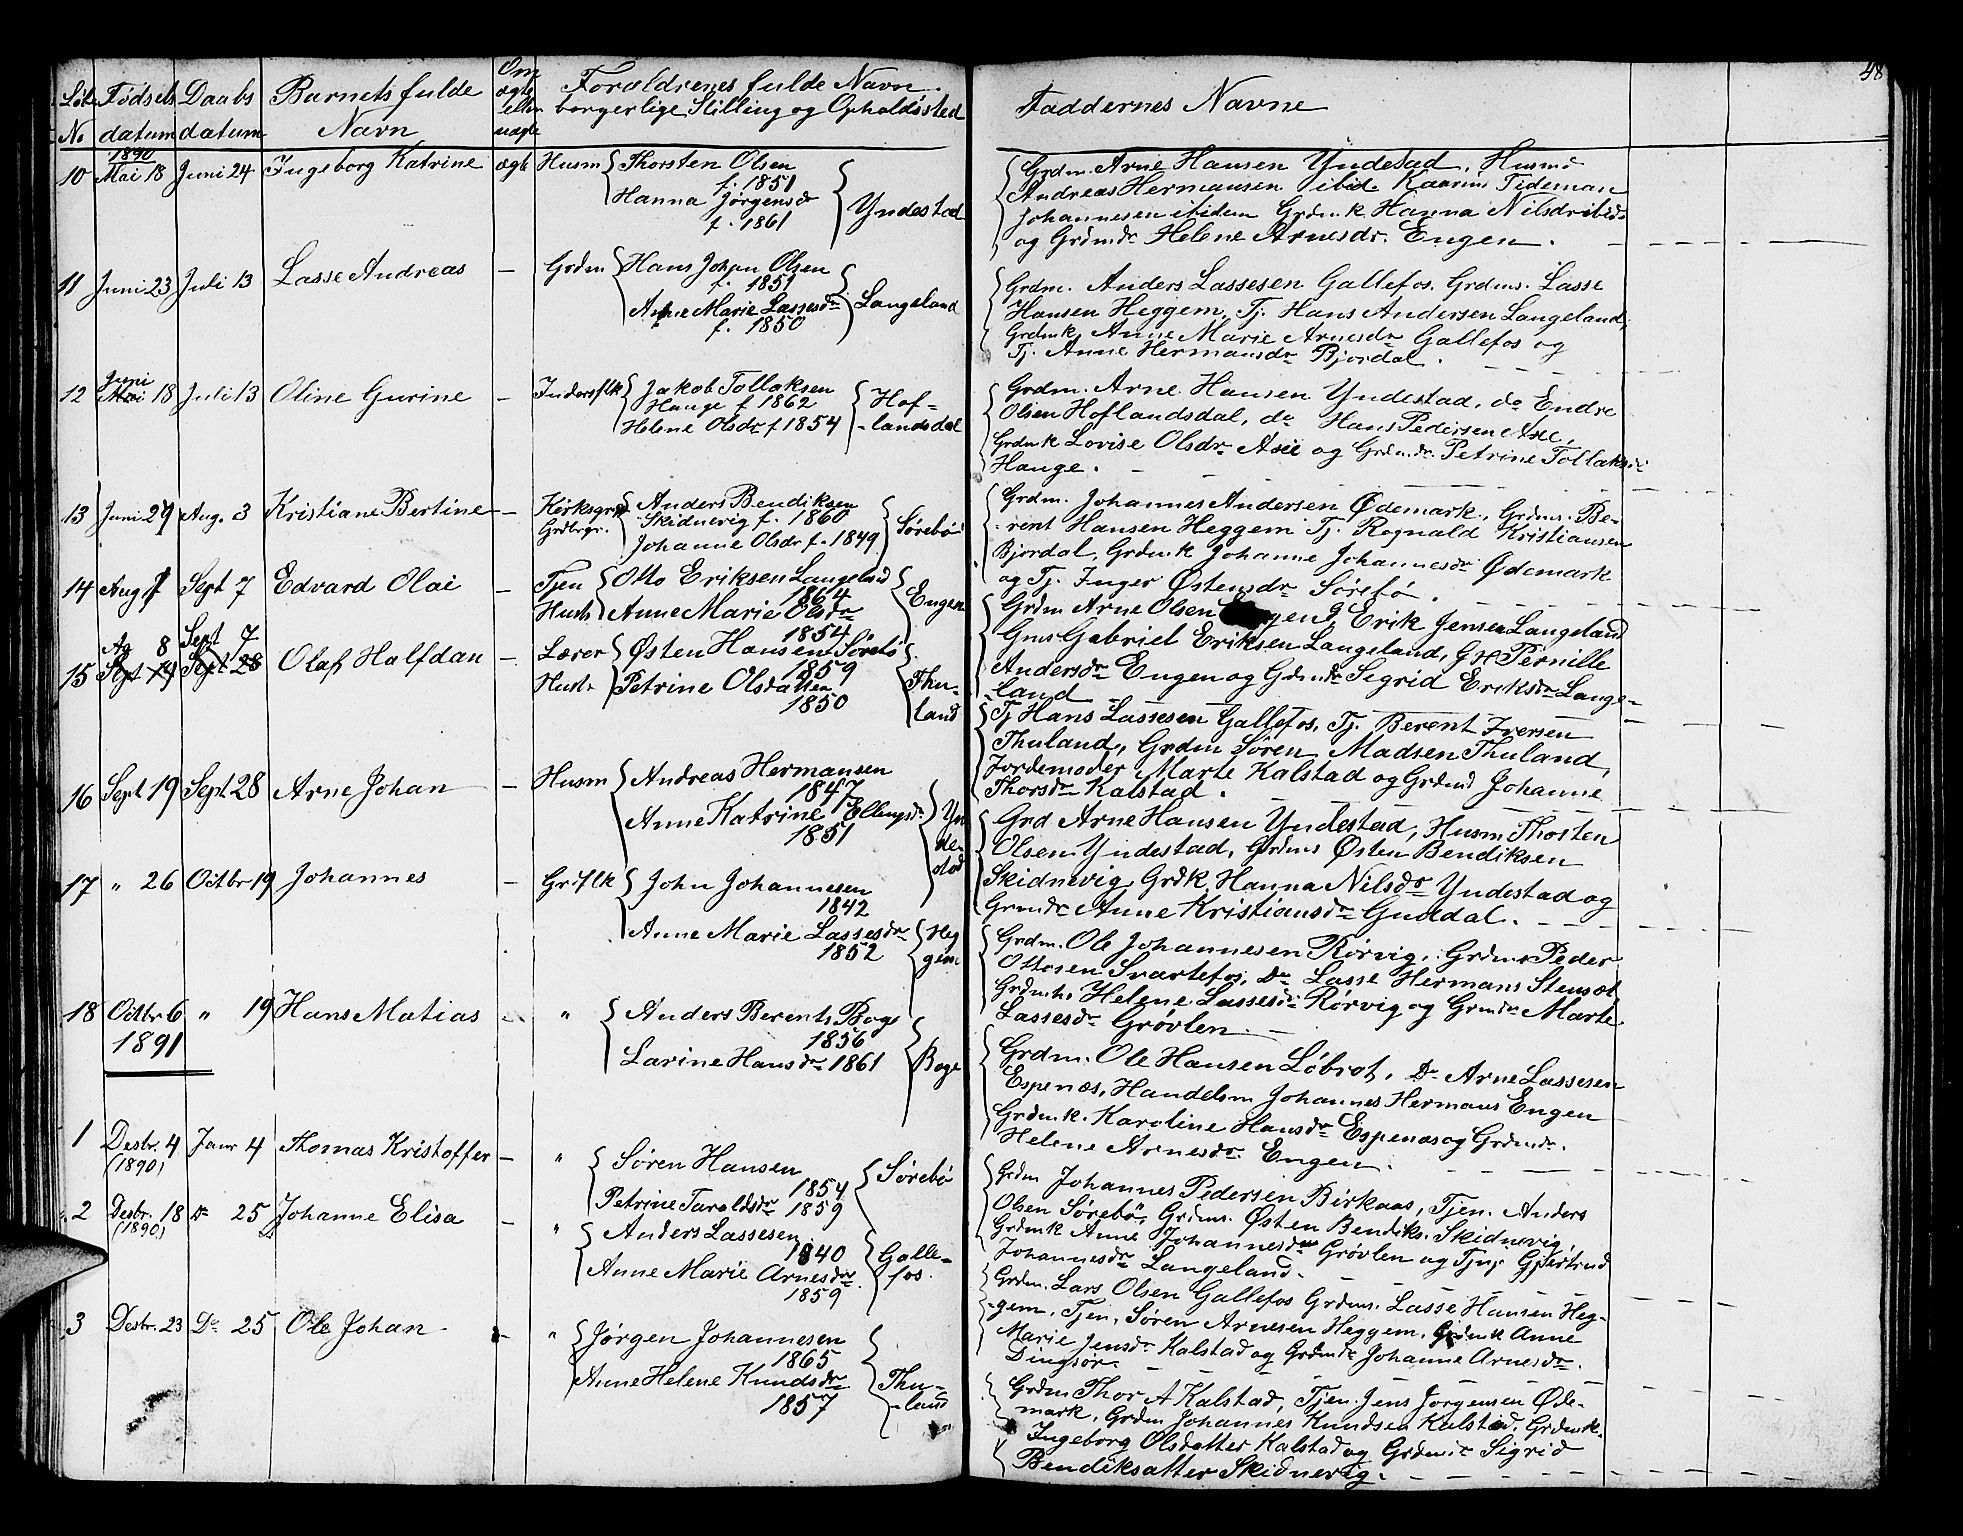 48
Løbe No
Fødsels datum
Daabs datum
Barnets fulde Navn
Om ægte eller uægte
Forældrenes fulde Navn borgerlige Stilling og Opholdssted
Faddernes Navne
1890
10 Mai 18 Juni 24 Ingeborg Katrine ægte Husm Thorsten Olsen
f. 1851
Hanna Jørgensdr
f. 1861
Yndestad
Grdm. Arne Hansen Yndestad, Husm
Andreas Hermansen ibid. Kaarm Tideman
Johannesen ibidem Grdmk Hanna Nilsdr ibid.
og Grdmdr Helene Arnesdr. Engen.
11 Juni 23 Juli 13 Lasse Andreas — Grdm. Hans Johan Olsen
f. 1851
Anne Marie Lassesdr
f. 1850
Langeland
Grdm. Anders Lassesen Gallefos. Grdms. Lasse
Hansen Heggem, Tj. Hans Andersen Langeland,
Grdmk, Anne Marie Arnesdr Gallefos og
Tj. Anne Hermansdr Bjordal.
12 Juni 18 Juli 13 Oline Gurine — Inderstflk Jakob Tollaksen
Hauge f 1862
Helene Olsdr f 1854
Hof-
-landsdal
Grdm. Arne Hansen Yndestad, do Endre
Olsen Hoflandsdal, do Hans Pedersen Aase,
Grdmk Lovise Olsdr Aase og Grdmdr Petrine Tollaksdr
Hauge.
13 Juni 29 Aug. 3 Kristiane Bertine — Kirksgr
Grdbrgr.
Anders Bendiksen
Skidnevig f. 1860
Johanne Olsdr f. 1849
Sørebø
Grdm. Johannes Andersen Ødemark, Grdms. Be-
-rent Hansen Heggem Tj. Rognald Kristiansen
Bjordal, Grdmk Johanne Johannesdr Ødemark
og Tj. Inger Østensdr Sørebø.
14 Aug 1 Sept 7 Edvard Olai — Tjen Otto Eriksen Langeland
1864
Hustr Anne Marie Olsdr
1854
Engen
Grdm Arne Olsen Engen, Erik Jensen Langeland
Gms Gabriel Eriksen Langeland, GK Pernille
Andersdr Engen og Grdmdr Sigrid Eriksdr Lange-
-land
Ag 8 Sept 7
15 Sept 19 Sept 28 Olaf Halfdan — Lærer Østen Hansen Sørebø
1859
Hustr Petrine Olsdatter
1850
Thu-
land
Tj Hans Lassesen Gallefos, Tj. Berent Iversen
Thuland, Grdm Søren Madsen Thuland,
Jordemoder Marte Kalstad og Grdmd Johanne
Thorsdr Kalstad.
16 Sept 19 Sept 28 Arne Johan — Husm Andreas Hermansen
1847
Anne Katrine Ellingsdr
1851
Yn
de-
stad
Grd Arne Hansen Yndestad, Husm Thosten
Olsen Yndestad, Grdms Østen Bendiksen
Skidnevig, Grdk. Hanna Nilsdr Yndestad og
Grmdr Anne Kristiansdr Guddal.
17 " 26 Octbr 19 Johannes — Grdflk John Johannesen
1842
Anne Marie Lassesdr
1852
Heg
gem
Grdm. Ole Johannesen Rørvig, Grdms Peder
Ottosen Svartefos, Do Lasse Hermans Stensæt
Grdmk, Helene Lassesdr Rørvig og Grmdr Marte
Lassesdr Grøvlen.
18 Octbr 6 " 19 Hans Matias — " Anders Berents Boge
1856
Larine Hansdr 1861
Boge
Grdm. Ole Hansen Løbrot, Do Arne Lassesen
Espenæs, Handelsm Johannes Hermans Engen
Grdmk. Karoline Hansdr Espenæs og Grdmdr.
Helene Arnesdr. Engen.
1891
1 Desbr. 4 Janr 4 Thomas Kristoffer — " Søren Hansen
(1890)
1854
Petrine Taraldsdr 1859
Sørebø
Grdm Johannes Pedersen Birkaas, Tjen. Anders
Olsen Sørebø, Grdms. Østen Bendiks. Skidnevig,
Grdmk Anne Johannesdr Grøvlen og Tjnp Gjertrud
Johannesdr Langeland.
2 Desbr. 18 Do 25 Johanne Elisa — " Anders Lassesen
(1890)
1840
Anne Marie Arnesdr
1859
Galle-
fos.
Grdm. Lars Olsen Gallefos Grdms. Lasse Hansen Heg-
-gem, Tjen, Søren Arnesen Heggem, Grdmk Anne
Marie Jensdr Kalstad og Grdmdr Johanne Arnesdr.
Dingsør
3 Desbr. 23 Do 25 Ole Johan — " Jørgen Johannesen
1865
Anne Helene Knudsdr
1857
Thu-
-land
Grdm Thor A Kalstad, Tjen. Jens Jørgensen Øde-
mark, Grdm Johannes Knudsen Kalstad, Grdmk.
Ingeborg Olsdatter Kalstad og Grdmdr Sigrid
Bendiksatter Skidnevig.